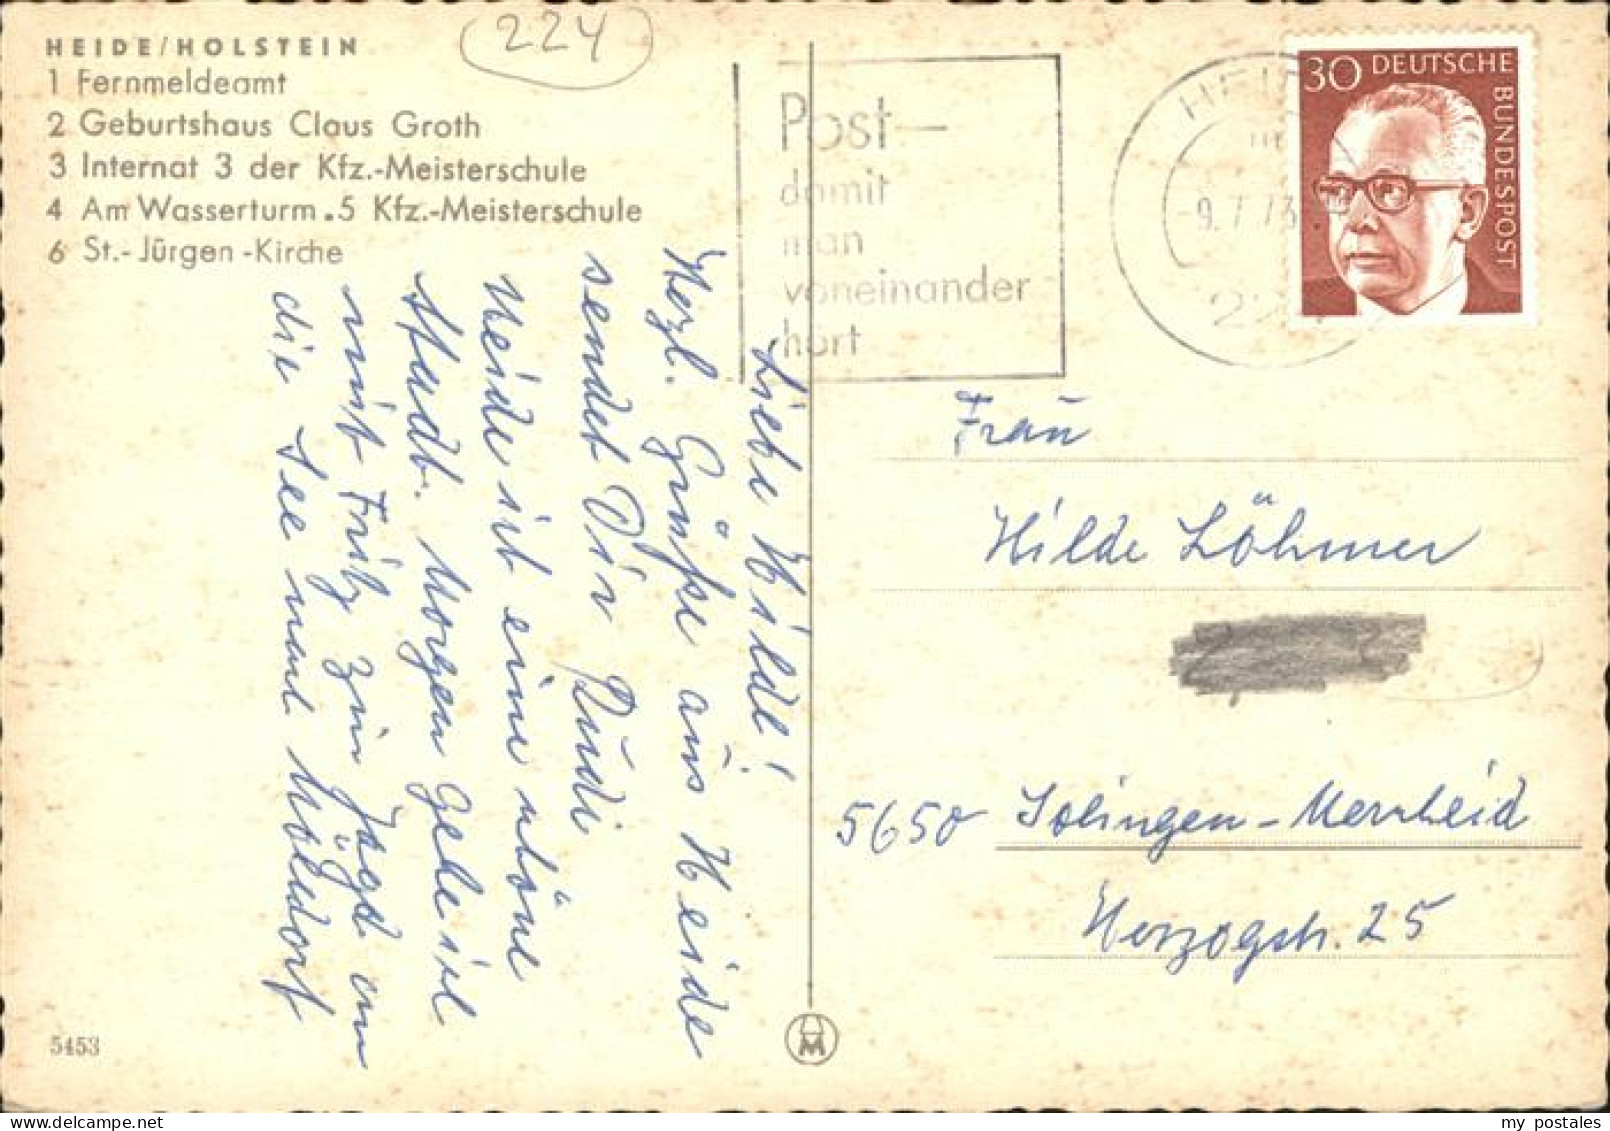 HEIDE/HOLSTEIN
1 Fernmeldeamt
2 Geburtshaus Claus Groth
3 Internat 3 der Kfz.-Meisterschule
4 Am Wasserturm . 5 Kfz.-Meisterschule
6 St.-Jürgen-Kirche
224
Post-
damit
man
voneinander
hört
-9.7.73
30 DEUTSCHE
BUNDESPOST
Liebe Hilde!
Herzl. Grüße aus Heide
sendet Dir Rudi
Heide ist eine schöne
Stadt. Morgen geht
mit Fritz zur Jagd an
die See nach
Frau
Hilde Löhmer
5650 Solingen-Merscheid
Herzogstr. 25
5453
my postales